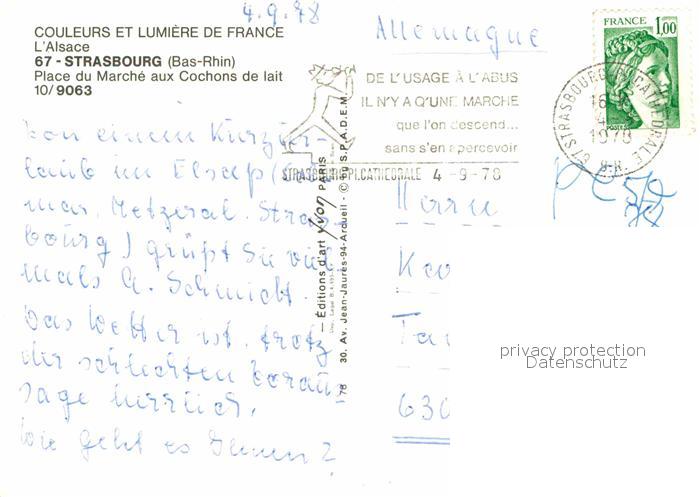 4.9.78
COULEURS ET LUMIÈRE DE FRANCE
L'Alsace
67 - STRASBOURG (Bas-Rhin)
Place du Marché aux Cochons de lait
10/9063
Allemagne
FRANCE 1,00
POSTES
67 STRASBOURG PL.CATHEDRALE
4-9
1978
B-R.
DE L'USAGE À L'ABUS
IL N'Y A QU'UNE MARCHE
que l'on descend...
sans s'en apercevoir
STRASBOURG PL.CATHEDRALE 4-9-78
Von einem Kurzur-
laub im Elsaß (Col-
mar, Metzeral, Stras-
bourg) grüßt Sie
mals G. Schmidt.
Das Wetter ist trotz
der schlechten Voraus-
sage herrlich.
Wie geht es Ihnen?
— Éditions d'art yvon PARIS
30. Av. Jean-Jaurès-94-Arcueil - © by S.P.A.D.E.M.
78
Herrn
630
privacy protection
Datenschutz